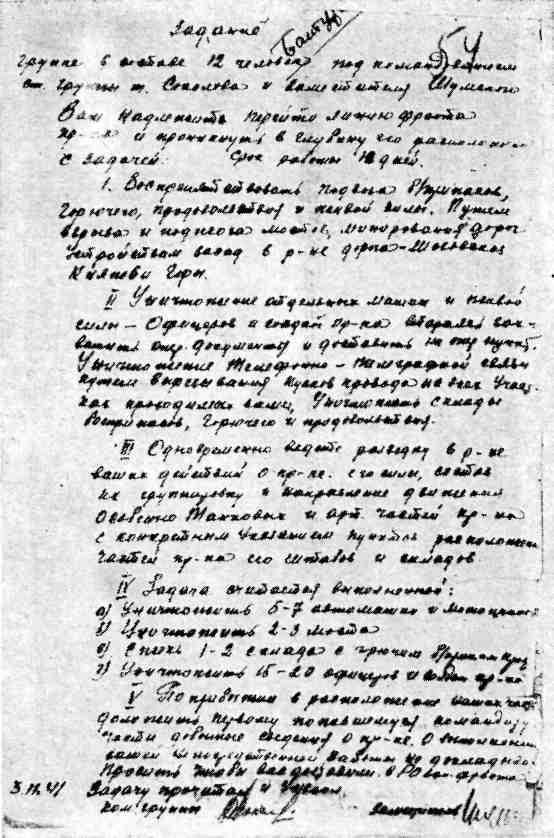 Задание
группе в составе 12 человек под командованием
ст. группы т. Соколова и заместителя Шумского
Вам надлежит перейти линию фронта
пр-ка и проникнуть в глубину его расположения
с задачей: Срок работы дней.
1. Воспрепятствовать подвозу боеприпасов,
горючего, продовольствия и живой силы. Путем
взрыва и поджога мостов, минирования дорог
устройством засад в р-не дорога – Шаховская
Княжьи Горы.
II Уничтожение отдельных машин и живой
силы – Офицеров и солдат пр-ка стараясь зах-
ватить опер. документы и доставить на опер. пункт.
Уничтожение телефонно – телеграфной связи
путем вырезывания кусков провода на всех участ-
ках проводимых вами, Уничтожить склады
боеприпасов, горючего и продовольствия.
III Одновременно ведете разведку в р-не
ваших действий о пр-ке. его силы, состав
их группировку и направление движения
Особенно танковых и арт. частей пр-ка
с конкретным указанием пунктов расположения
частей пр-ка его штабов и складов
IV Задача считается выполненной:
а) Уничтожить 5-7 автомашин и мотоциклов
б) Уничтожить 2-3 моста
в) Сжечь 1-2 склада с горючим
г) Уничтожить 15-20 офицеров и солдат пр-ка
V По прибытии в расположение наших частей
доложить первому попавшемуся командиру
части данные сведения о пр-ке. О выполнении
вашей непосредственной работы не докладывать.
Просить чтобы вас доставили в РО Зап. фронта
3.11.41 Задачу прочитал и уяснил
Ком группы заместитель